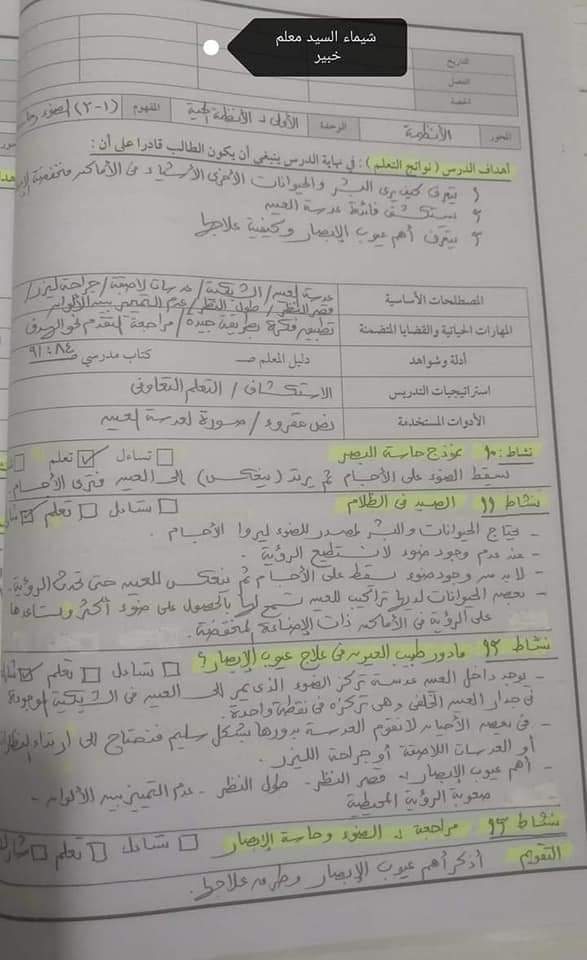 شيماء السيد معلم
خبير
التاريخ
الفصل
الحصة
المحور الأنظمة الوحدة الأولى: الأنظمة الحية المفهوم (١-٣) الضوء
أهداف الدرس ( نواتج التعلم ) : في نهاية الدرس ينبغي أن يكون الطالب قادرا على أن :
١ يتعرف كيف يرى البشر والحيوانات الأخرى الأشياء فى الأماكن منخفضة
٢ يستكشف فائدة عدسة العين
٣ يتعرف أهم عيوب الإبصار وكيفية علاجها
المصطلحات الأساسية عدسة العين / الشبكية / عدسات لاصقة / جراحة ليزر /
قصر النظر / طول النظر / عدم التمييز بين الألوان
المهارات الحياتية والقضايا المتضمنة تطبيق فكرة بطريقة جيدة / مراجعة التقدم نحو الهدف
أدلة وشواهد دليل المعلم صـ كتاب مدرسي صـ ٨٤ : ٩١
استراتيجيات التدريس الاستكشاف / التعلم التعاونى
الأدوات المستخدمة نص مقروء / صورة لعدسة العين
نشاط ١٠: نموذج حاسة البصر تساءل تعلم
تسقط الضوء على الأجسام ثم يرتد (ينعكس) إلى العين فنرى الأجسام
نشاط ١١ الصيد فى الظلام تساءل تعلم
- تحتاج الحيوانات والبشر لمصدر للضوء ليروا الأجسام .
- عند عدم وجود ضوء لا نستطيع الرؤية .
- لابد من وجود ضوء يسقط على الأجسام ثم ينعكس للعين حتى تحدث الرؤية .
- بعض الحيوانات لديها تراكيب للعين تسمح لها بالحصول على ضوء أكثر وتساعدها
على الرؤية فى الأماكن ذات الإضاءة المنخفضة .
نشاط ١٢ مادور طبيب العيون فى علاج عيوب الإبصار ؟ تساءل تعلم
- يوجد داخل العين عدسة تركز الضوء الذى يمر إلى العين فى الشبكية الموجودة
فى جدار العين الخلفى وهى تركزه فى نقطة واحدة .
- فى بعض الأحيان لا تقوم العدسة بدورها بشكل سليم فنحتاج إلى ارتداء
أو العدسات اللاصقة أو جراحة الليزر .
- أهم عيوب الإبصار :- قصر النظر - طول النظر - عدم التمييز بين الألوان -
صعوبة الرؤية المحيطية
نشاط ١٣ مراجعة : الضوء وحاسة الإبصار تساءل تعلم شارك
التقويم أذكر أهم عيوب الإبصار وطرق علاجها .